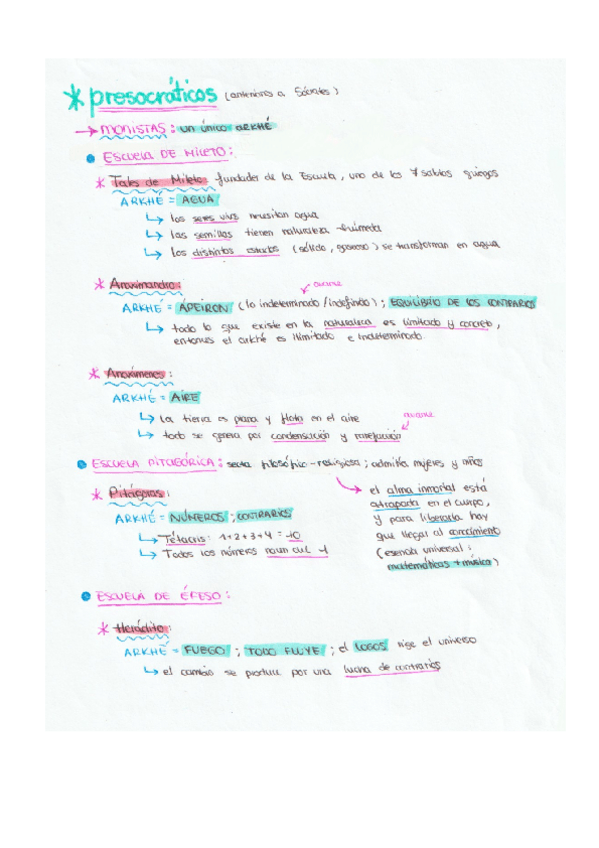 * presocráticos (anteriores a Sócrates)
→ MONISTAS: un único ARKHÉ
ESCUELA DE MILETO:
* Tales de Mileto fundador de la Escuela, uno de los 7 sabios griegos
ARKHÉ = AGUA
↳ los seres vivos necesitan agua
↳ las semillas tienen naturaleza húmeda
↳ los distintos estados (sólido, gaseoso) se transforman en agua
* Anaximandro:
ARKHÉ = ÁPEIRON (lo indeterminado/indefinido); EQUILIBRIO DE LOS CONTRARIOS
↳ todo lo que existe en la naturaleza es limitado y concreto,
entonces el arkhé es ilimitado e indeterminado.
* Anaxímenes:
ARKHÉ = AIRE
↳ La tierra es plana y flota en el aire
↳ todo se genera por condensación y rarefacción
ESCUELA PITAGÓRICA: secta filosófico-religiosa; admitía mujeres y niños
el alma inmortal está
atrapada en el cuerpo,
y para liberarla hay
que llegar al conocimiento
(esencia universal:
matemáticas + música)
* Pitágoras:
ARKHÉ = NÚMEROS; CONTRARIOS
↳ Tétracns: 1+2+3+4 = 10
↳ Todos los números nacen del 1
ESCUELA DE ÉFESO:
* Heráclito:
ARKHÉ = FUEGO; TODO FLUYE; el LOGOS rige el universo
↳ el cambio se produce por una lucha de contrarios